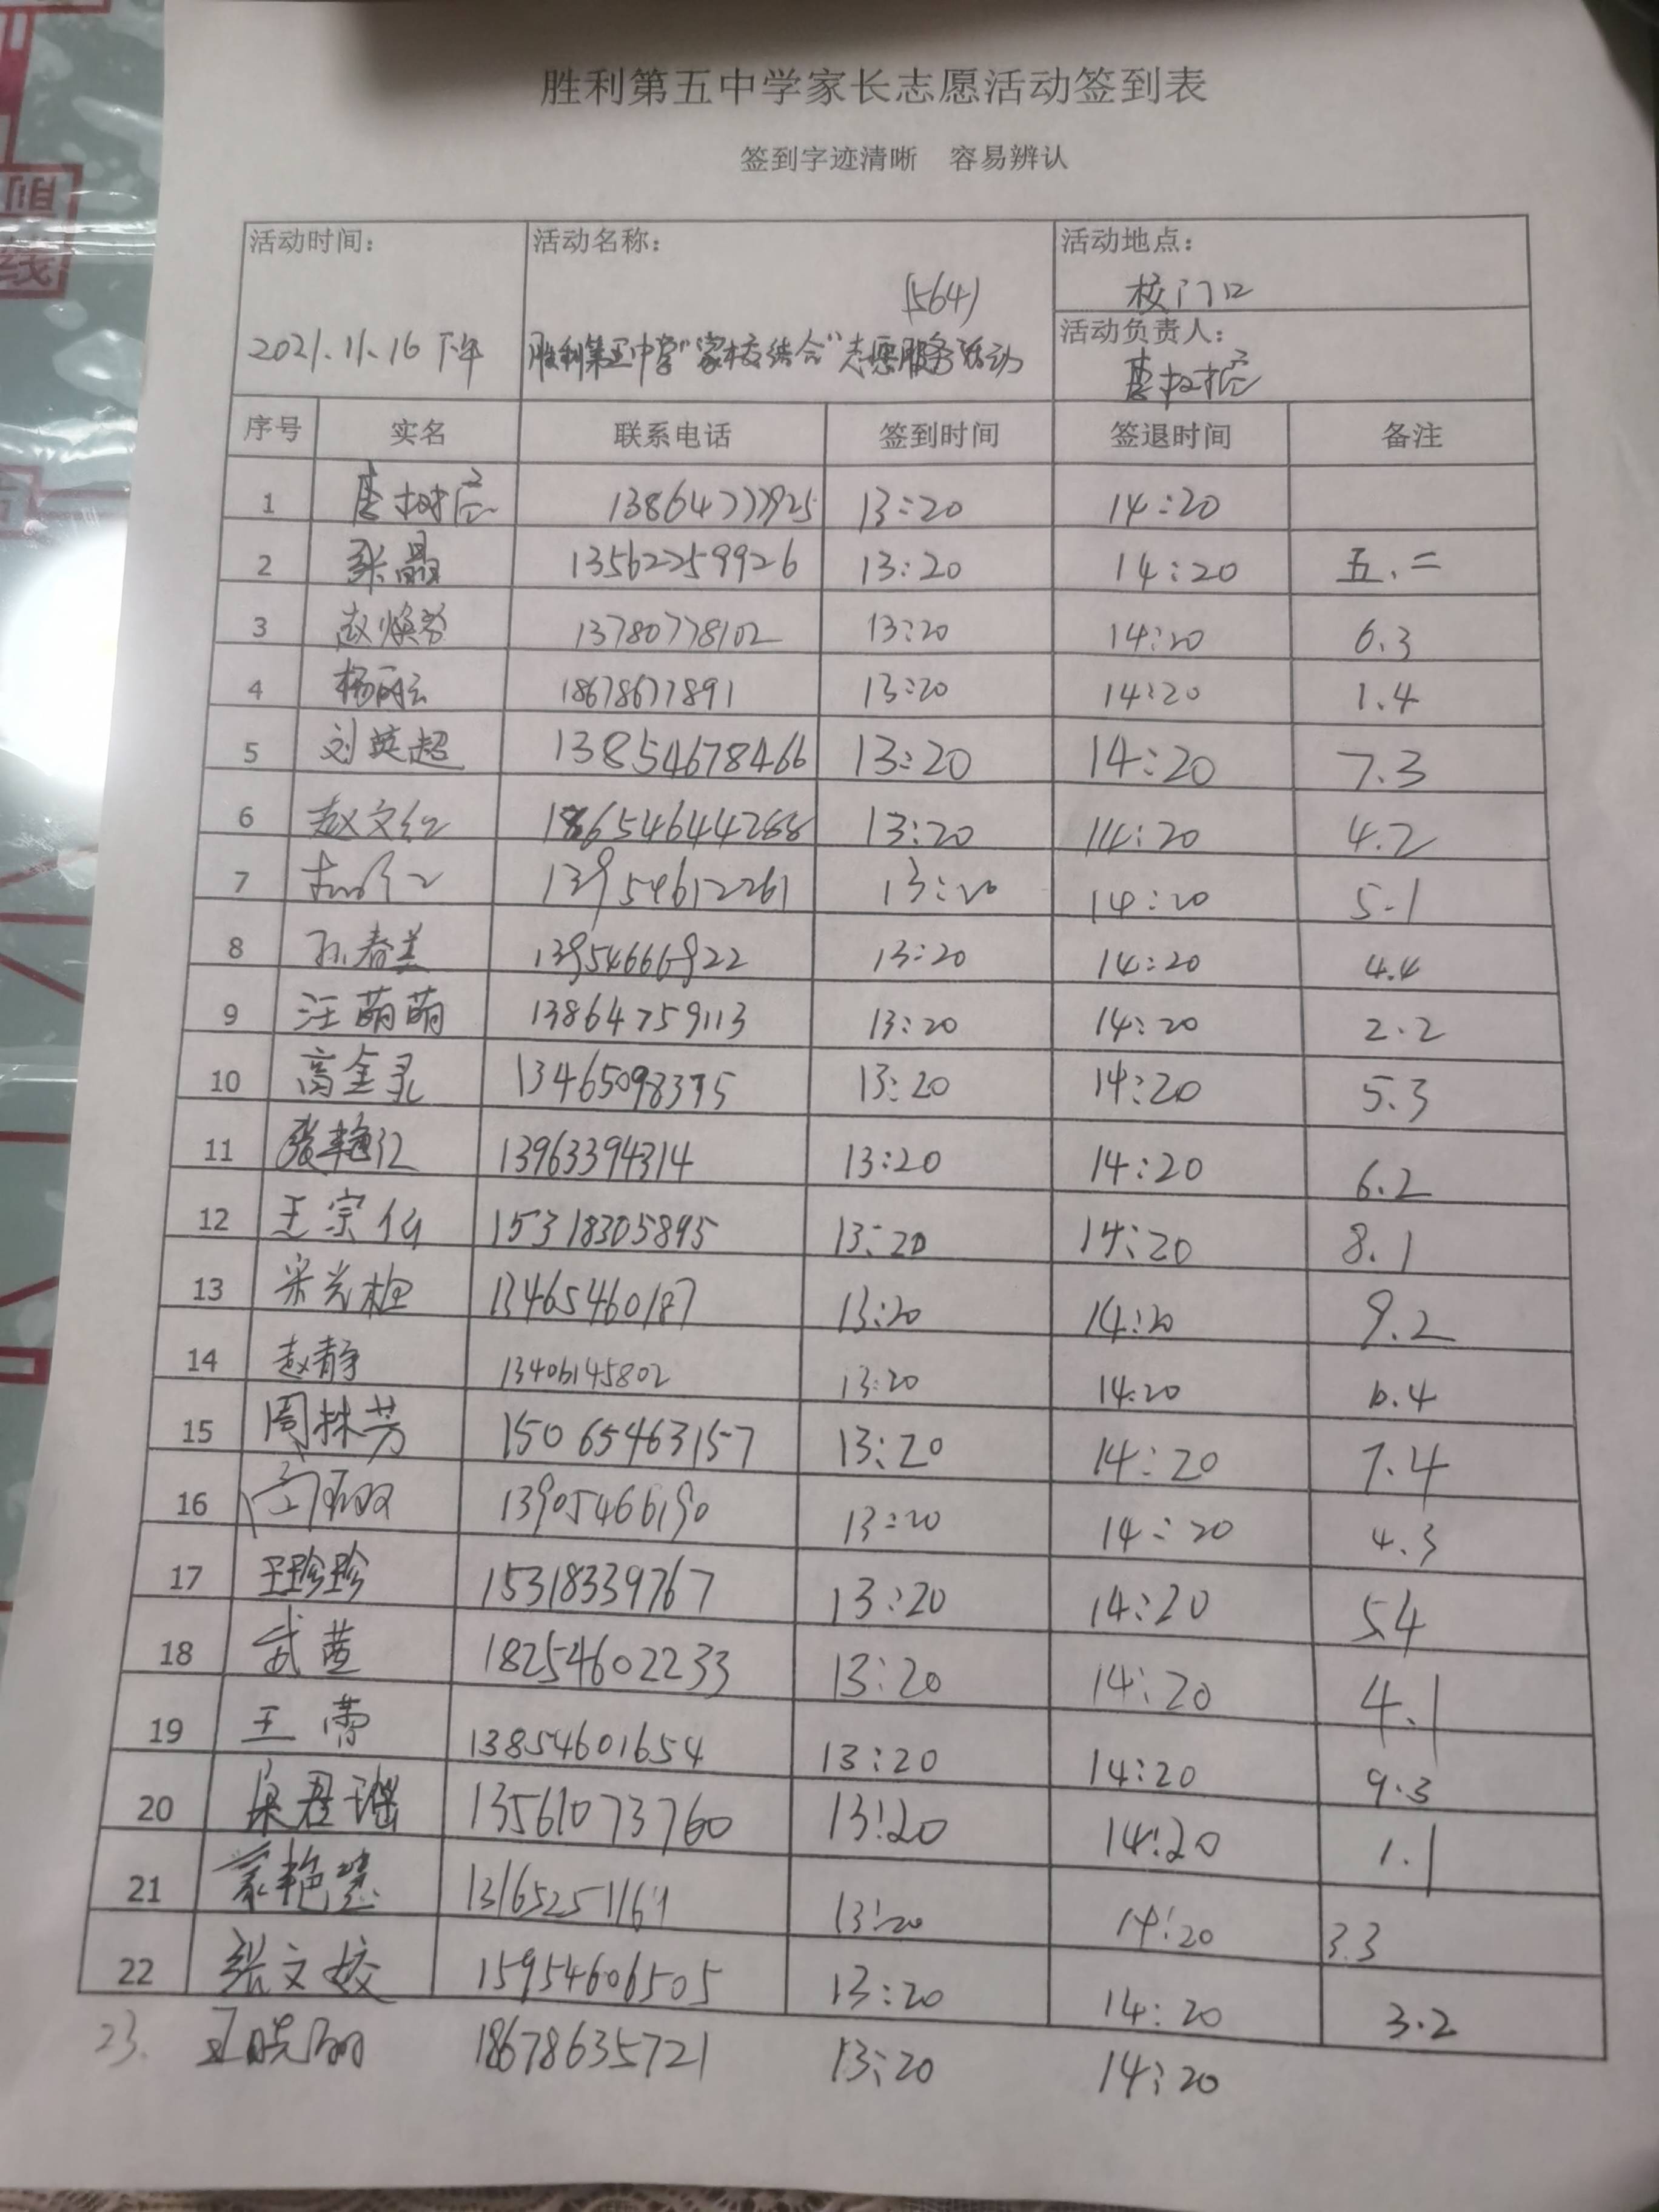 胜利第五中学家长志愿活动签到表
签到字迹清晰 容易辨认
活动时间： 活动名称： 活动地点：
(564) 校门口
活动负责人：
2021.11.16 下午 胜利第五中学"家校结合"志愿服务活动
序号 实名 联系电话 签到时间 签退时间 备注
1 13:20 14:20
2 张晶 13562259926 13:20 14:20 五.二
3 赵焕芬 13780778102 13:20 14:20 6.3
4 杨丽云 18678677891 13:20 14:20 1.4
5 刘英超 13854678466 13:20 14:20 7.3
6 赵文红 13:20 14:20 4.2
7 13954612261 13:20 14:20 5.1
8 孙春美 13954666922 13:20 14:20 4.4
9 汪萌萌 13864759113 13:20 14:20 2.2
10 高金录 13465098375 13:20 14:20 5.3
11 张艳红 13963394314 13:20 14:20 6.2
12 王宗仙 15318305895 13:20 14:20 8.1
13 13465460187 13:20 14:20 9.2
14 赵静 13406145802 13:20 14:20 6.4
15 周林芳 15065463157 13:20 14:20 7.4
16 13905466190 13:20 14:20 4.3
17 王珍珍 15318339767 13:20 14:20 5.4
18 武茜 18254602233 13:20 14:20 4.1
19 王蕾 13854601654 13:20 14:20 9.3
20 梁君瑶 13561073760 13:20 14:20 1.1
21 13:20 14:20 3.3
22 张文姣 15954606505 13:20 14:20 3.2
23. 王晓丽 18678635721 13:20 14:20